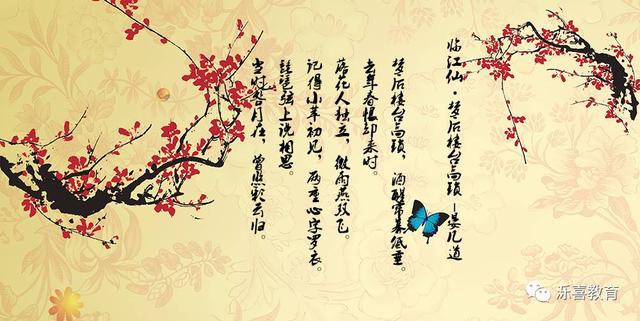 临江仙·梦后楼台高锁—晏几道
梦后楼台高锁，酒醒帘幕低垂。
去年春恨却来时。
落花人独立，微雨燕双飞。
记得小苹初见，两重心字罗衣。
琵琶弦上说相思。
当时明月在，曾照彩云归。
泺喜教育